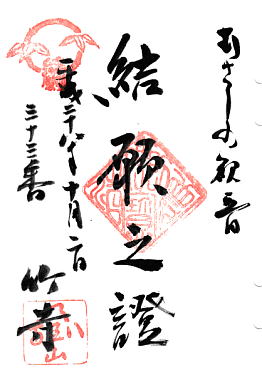 むさしの観音
結願之證
平成二十八年十月一日
三十三番
竹寺